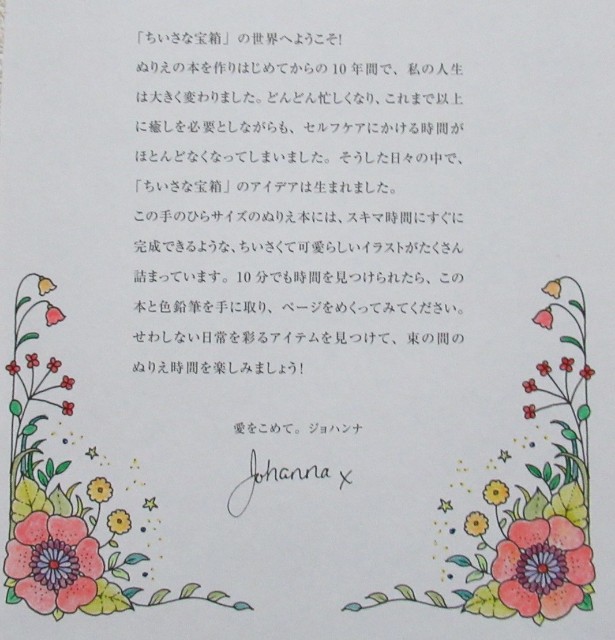 「ちいさな宝箱」の世界へようこそ!
ぬりえの本を作りはじめてからの10年間で、私の人生
は大きく変わりました。どんどん忙しくなり、これまで以上
に癒しを必要としながらも、セルフケアにかける時間が
ほとんどなくなってしまいました。そうした日々の中で、
「ちいさな宝箱」のアイデアは生まれました。
この手のひらサイズのぬりえ本には、スキマ時間にすぐに
完成できるような、ちいさくて可愛らしいイラストがたくさん
詰まっています。10分でも時間を見つけられたら、この
本と色鉛筆を手に取り、ページをめくってみてください。
せわしない日常を彩るアイテムを見つけて、束の間の
ぬりえ時間を楽しみましょう!
愛をこめて。ジョハンナ
Johanna x